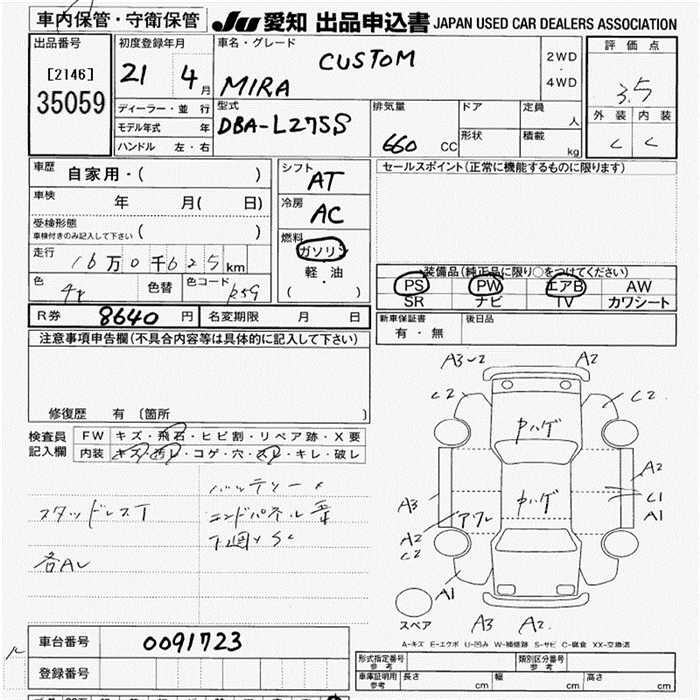 車内保管・守衛保管 JU 愛知 出品申込書 JAPAN USED CAR DEALERS ASSOCIATION
出品番号
[2146]
35059
初度登録年月
21 4 月
ディーラー・並行
モデル年式 年
ハンドル 左・右
車名・グレード
CUSTOM
MIRA
2WD
・
4WD
型式
DBA-L275S
排気量
660 CC
ドア
形状
定員
人
積載
kg
評価点
3.5
外装 内装
C C
車歴
自家用・( )
車検
年 月( 日)
受検形態
車検付きのみ記入して下さい ( )
走行
16万0千625km
色
色替
色コード
シフト
AT
冷房
AC
燃料
ガソリン
軽・油
( )
セールスポイント(正常に機能するものに限ります)
装備品(純正品に限り○をつけてください)
PS PW エアB AW
SR ナビ TV カワシート
R券 8640 円 名変期限 月 日
新車保証書
有・無
後日品
注意事項申告欄(不具合内容等は具体的に記入して下さい)
修復歴 有 〔箇所 〕
検査員
記入欄
FW キズ・飛石・ヒビ割・リペア跡・X要
内装 キズ・汚レ・コゲ・穴・スレ・キレ・破レ
バッテリー×
スタッドレスT
エンドパネル
下廻りSC
A3 A2
C2 C2
ハゲ
ハゲ
A3
A2
C1
A1
A2
C2
A1
スペア
A3 A2
A-キズ E-エクボ U-凹み W-補修跡 S-サビ C-腐食 XX-交換済
車台番号 0091723
登録番号
形式指定番号
参考
類別区分番号
参考
車庫証明用
参考
長さ cm 幅 cm 高さ cm